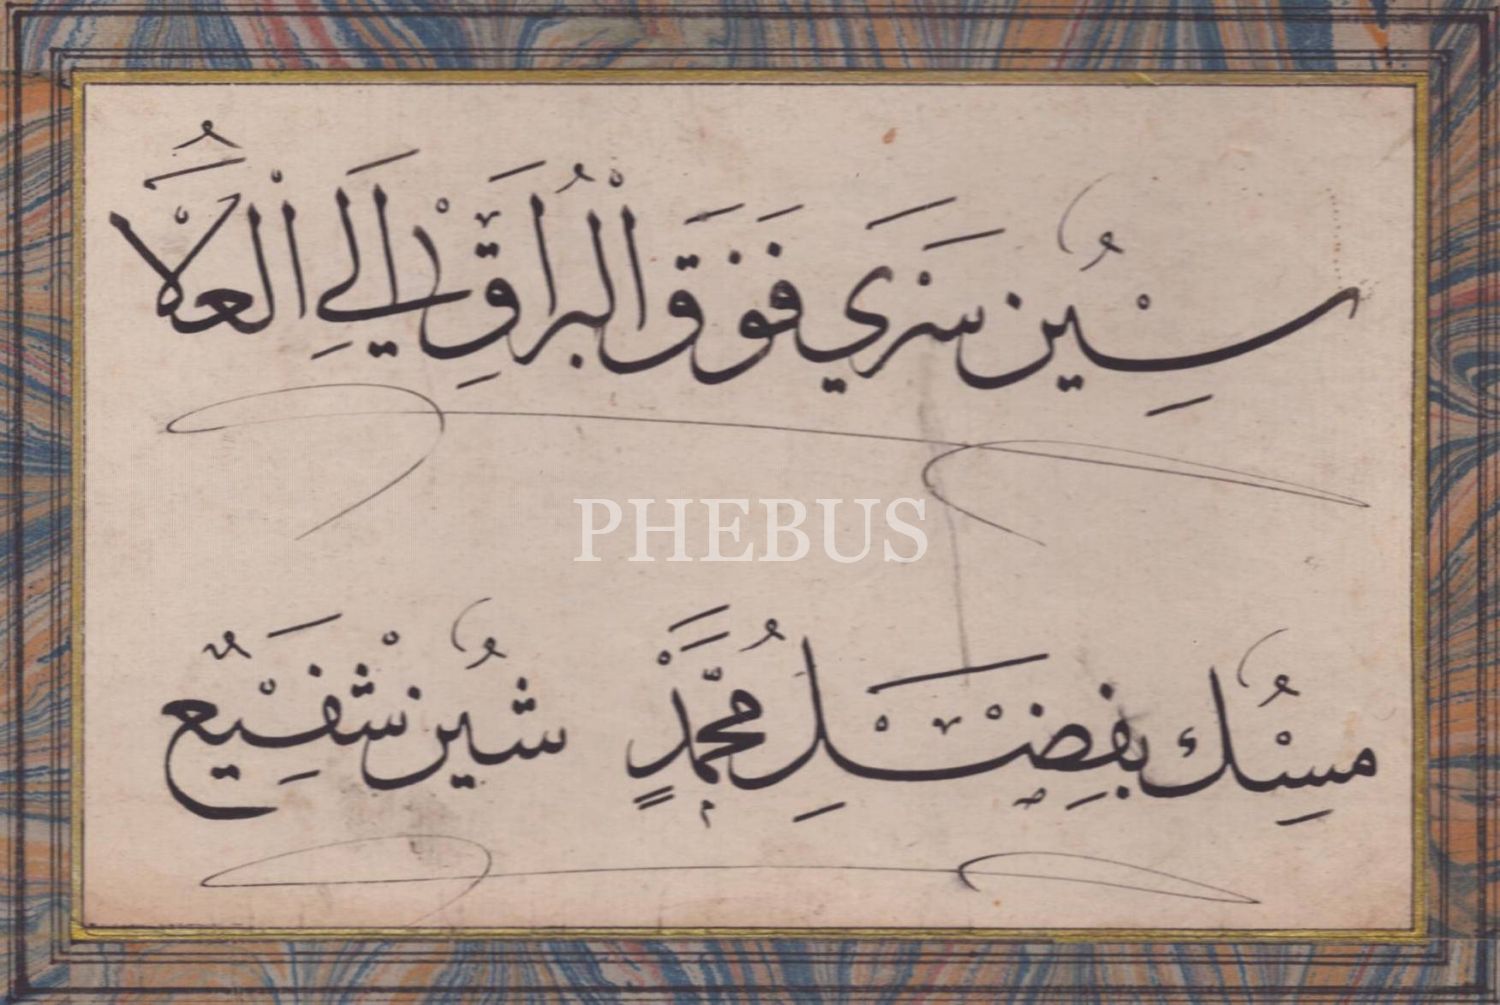 سِيْنُ سَرَي فَوْقَ الْبُرَاقِ إِلَي الْعُلَا
PHEBUS
مِسْكُ بِفِضْلِ مُحَمَّدٍ شِيْنُ شَفِيْعٌ